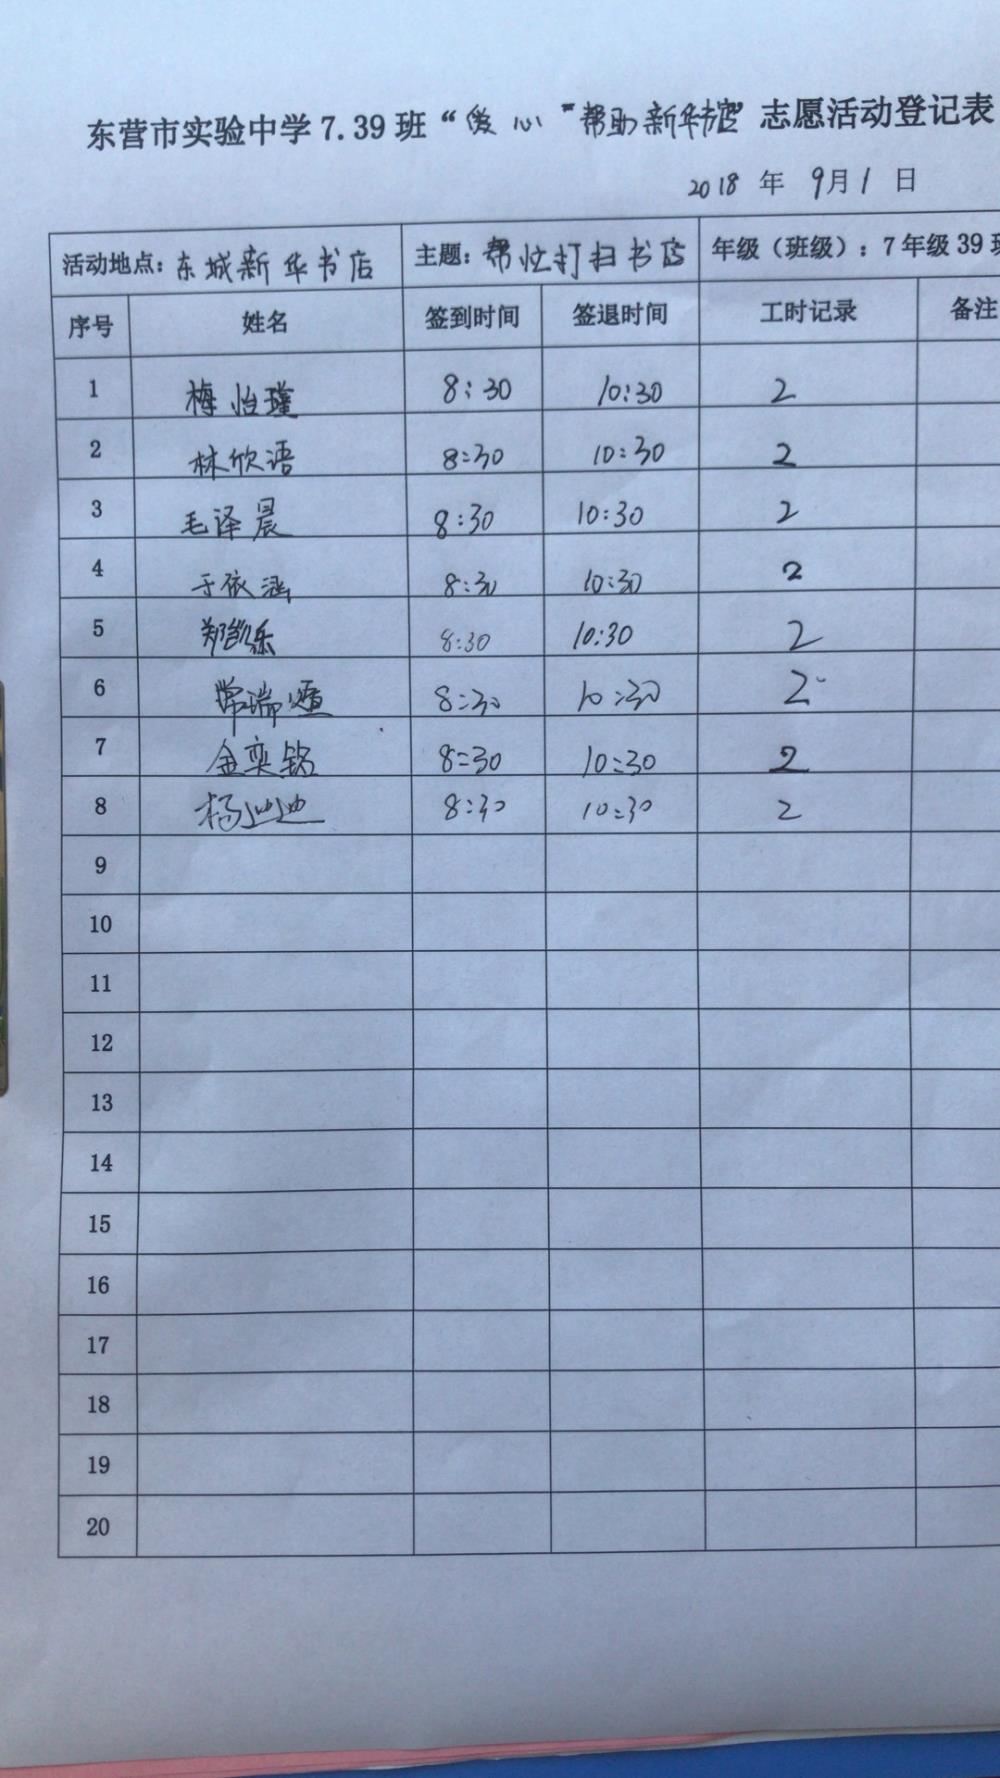 东营市实验中学 7.39 班“爱心”帮助新华书店”志愿活动登记表
2018 年 9月1 日
活动地点：东城新华书店 主题：帮忙打扫书店 年级（班级）：7 年级 39 班
序号 姓名 签到时间 签退时间 工时记录 备注
1 梅怡瑾 8:30 10:30 2
2 林欣语 8:30 10:30 2
3 毛泽晨 8:30 10:30 2
4 于依涵 8:30 10:30 2
5 郑凯乐 8:30 10:30 2
6 常瑞 8:30 10:30 2
7 金奕铭 8:30 10:30 2
8 杨迪迪 8:30 10:30 2
9
10
11
12
13
14
15
16
17
18
19
20